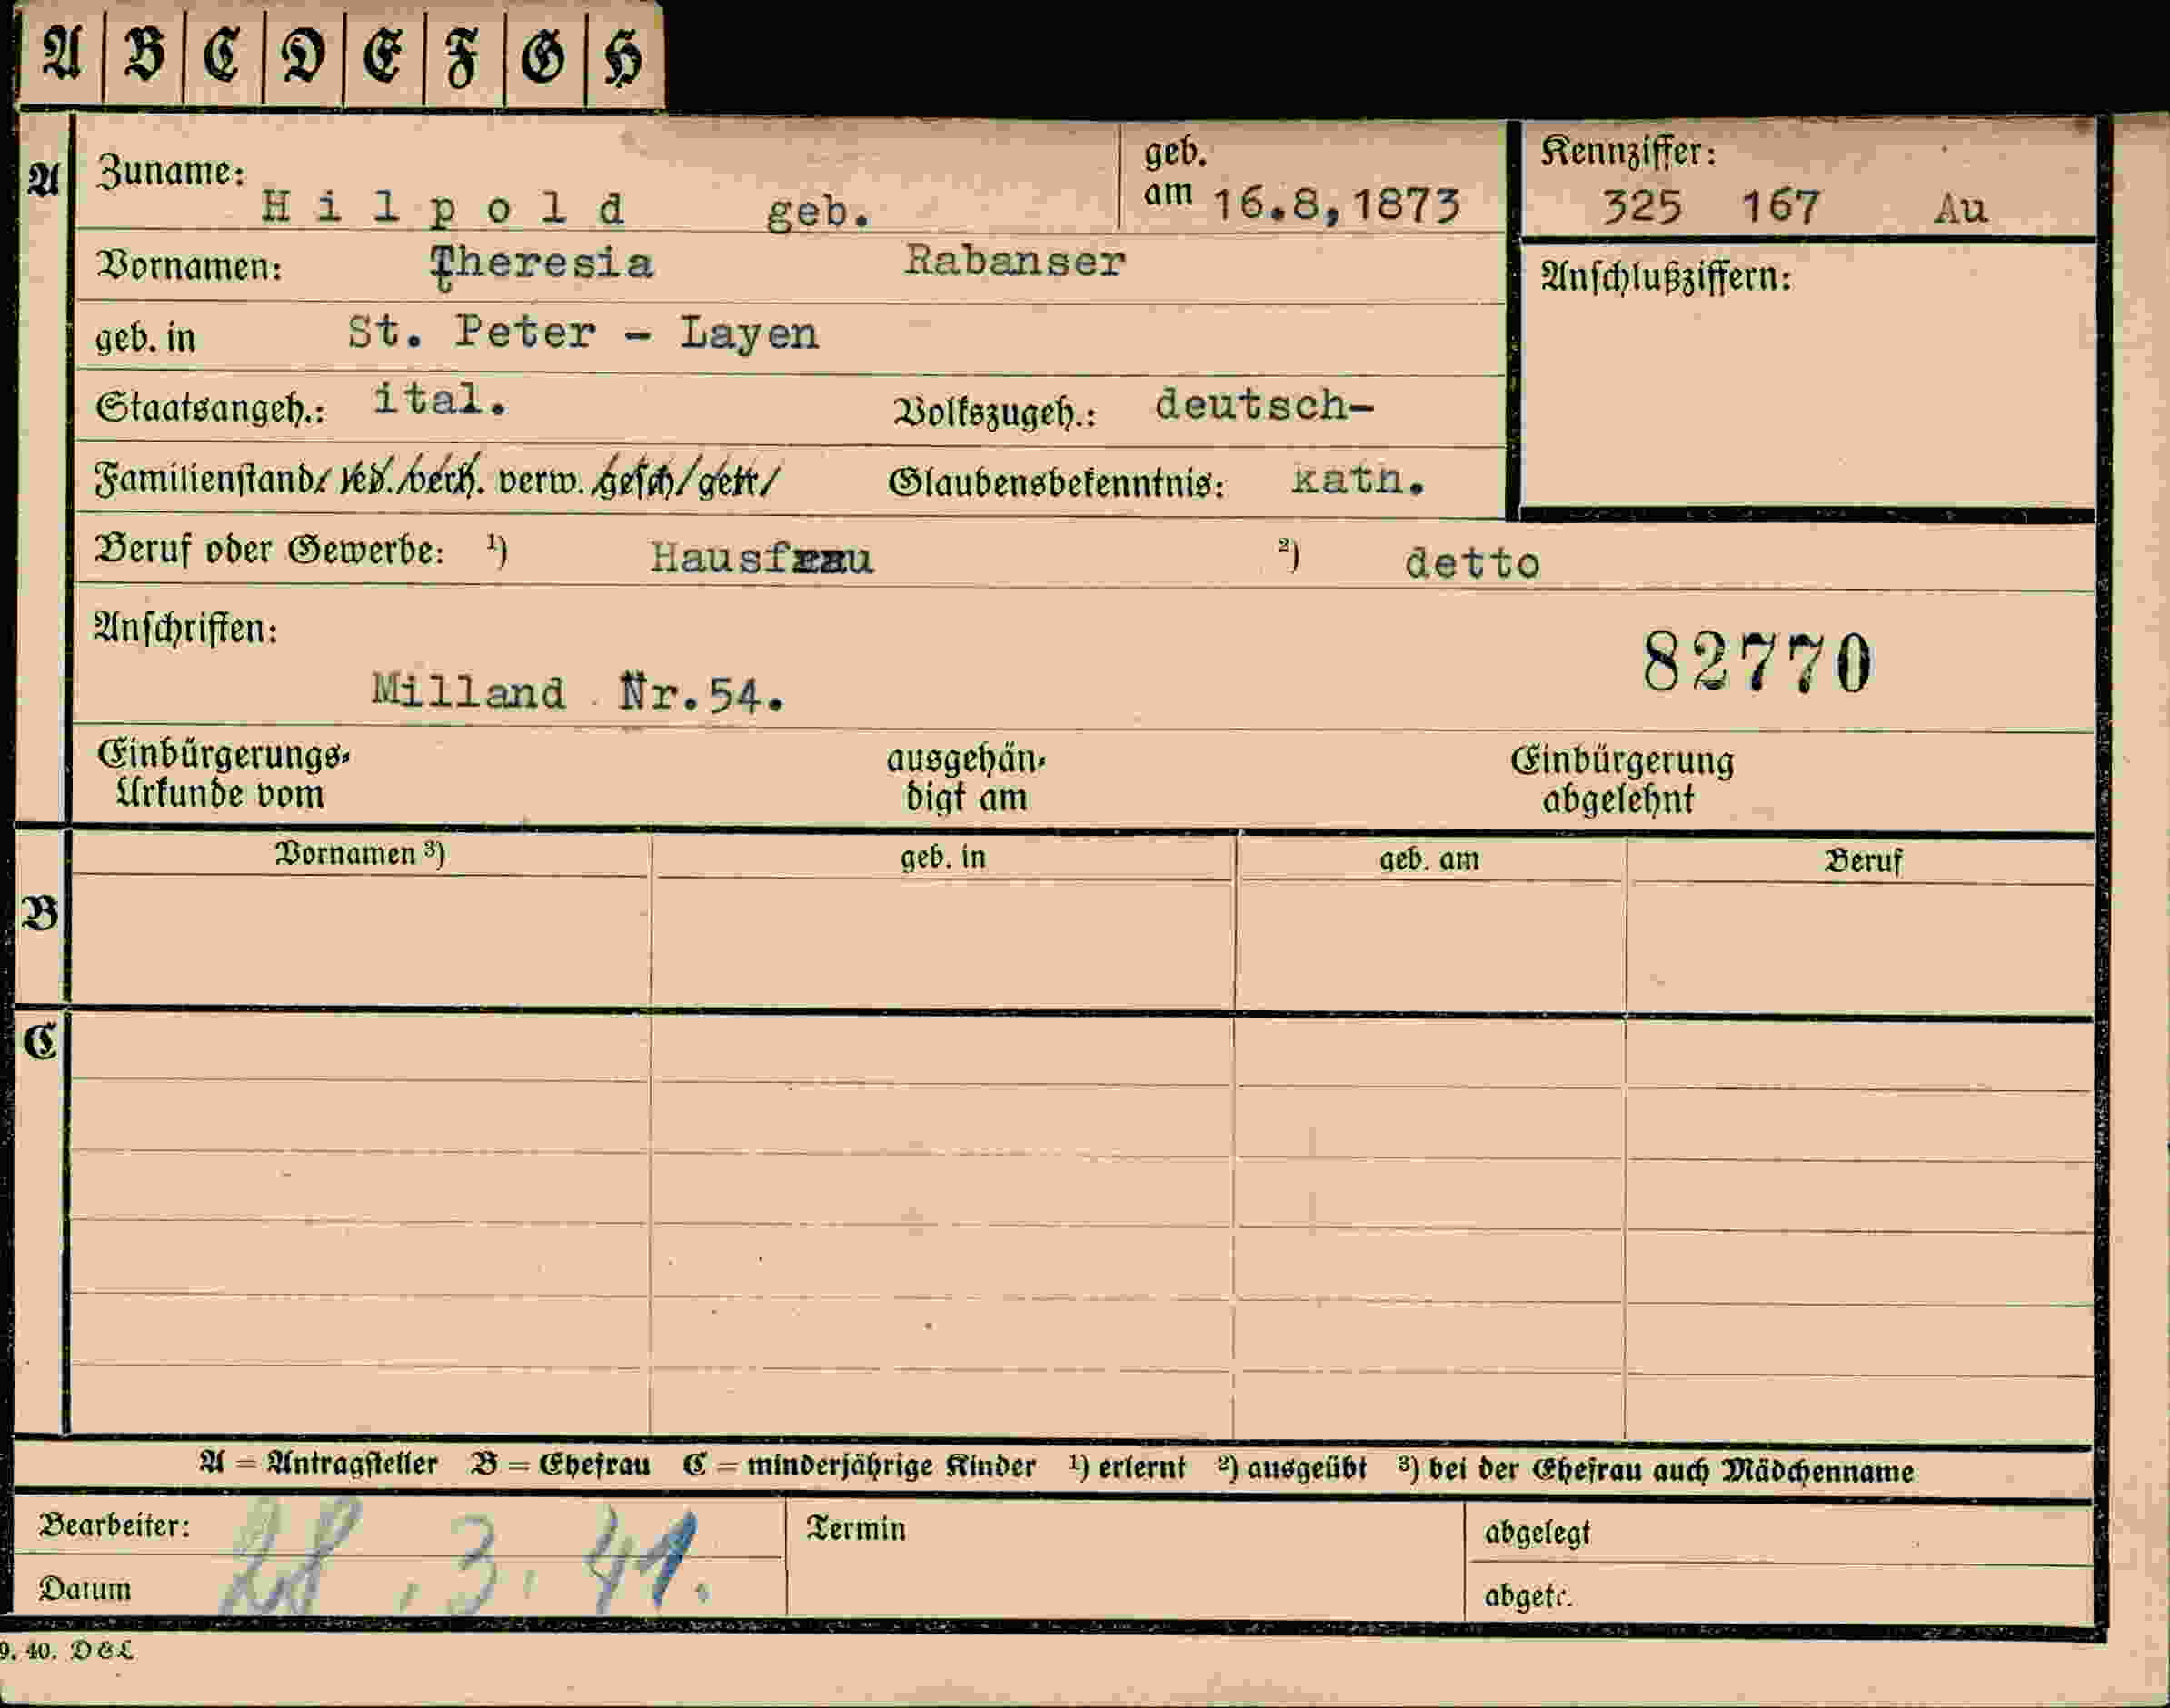 A B C D E F G H
A Zuname: Hilpold geb. geb. am 16.8,1873 Kennziffer: 325 167 Au
Vornamen: Theresia Rabanser Anschlußziffern:
geb. in St. Peter - Layen
Staatsangeh.: ital. Volkszugeh.: deutsch-
Familienstand: led. verh. verw. gesch. getr. Glaubensbekenntnis: kath.
Beruf oder Gewerbe: ¹) Hausfrau ²) detto
Anschriften:
82770
Milland Nr.54.
Einbürgerungs- ausgehän- Einbürgerung
Urkunde vom digt am abgelehnt
Vornamen ³) geb. in geb. am Beruf
B
C
A = Antragsteller B = Ehefrau C = minderjährige Kinder ¹) erlernt ²) ausgeübt ³) bei der Ehefrau auch Mädchenname
Bearbeiter: Termin abgelegt
28. 3. 41.
Datum abgetr.
9. 40. D&L